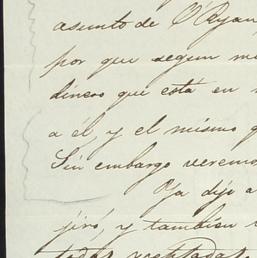 asunto de O'Ryan,
por que segun me
dinero que está en
a él, y el mismo
Sin embargo veremo
Ya dije a
jiró, y tambien
todas